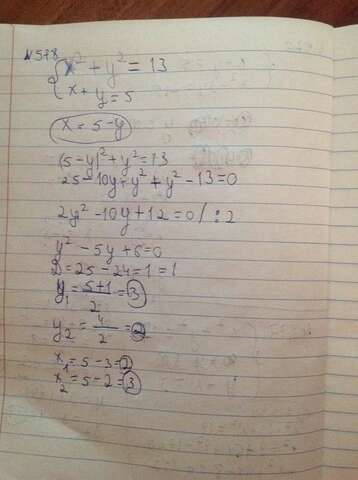 N578
{ x² + y² = 13
x + y = 5
x = 5 - y
(5 - y)² + y² = 13
25 - 10y + y² + y² - 13 = 0
2y² - 10y + 12 = 0 / : 2
y² - 5y + 6 = 0
D = 25 - 24 = 1 = 1
y₁ = 5+1/2 = 3
y₂ = 4/2 = 2
x₁ = 5 - 3 = 2
x₂ = 5 - 2 = 3